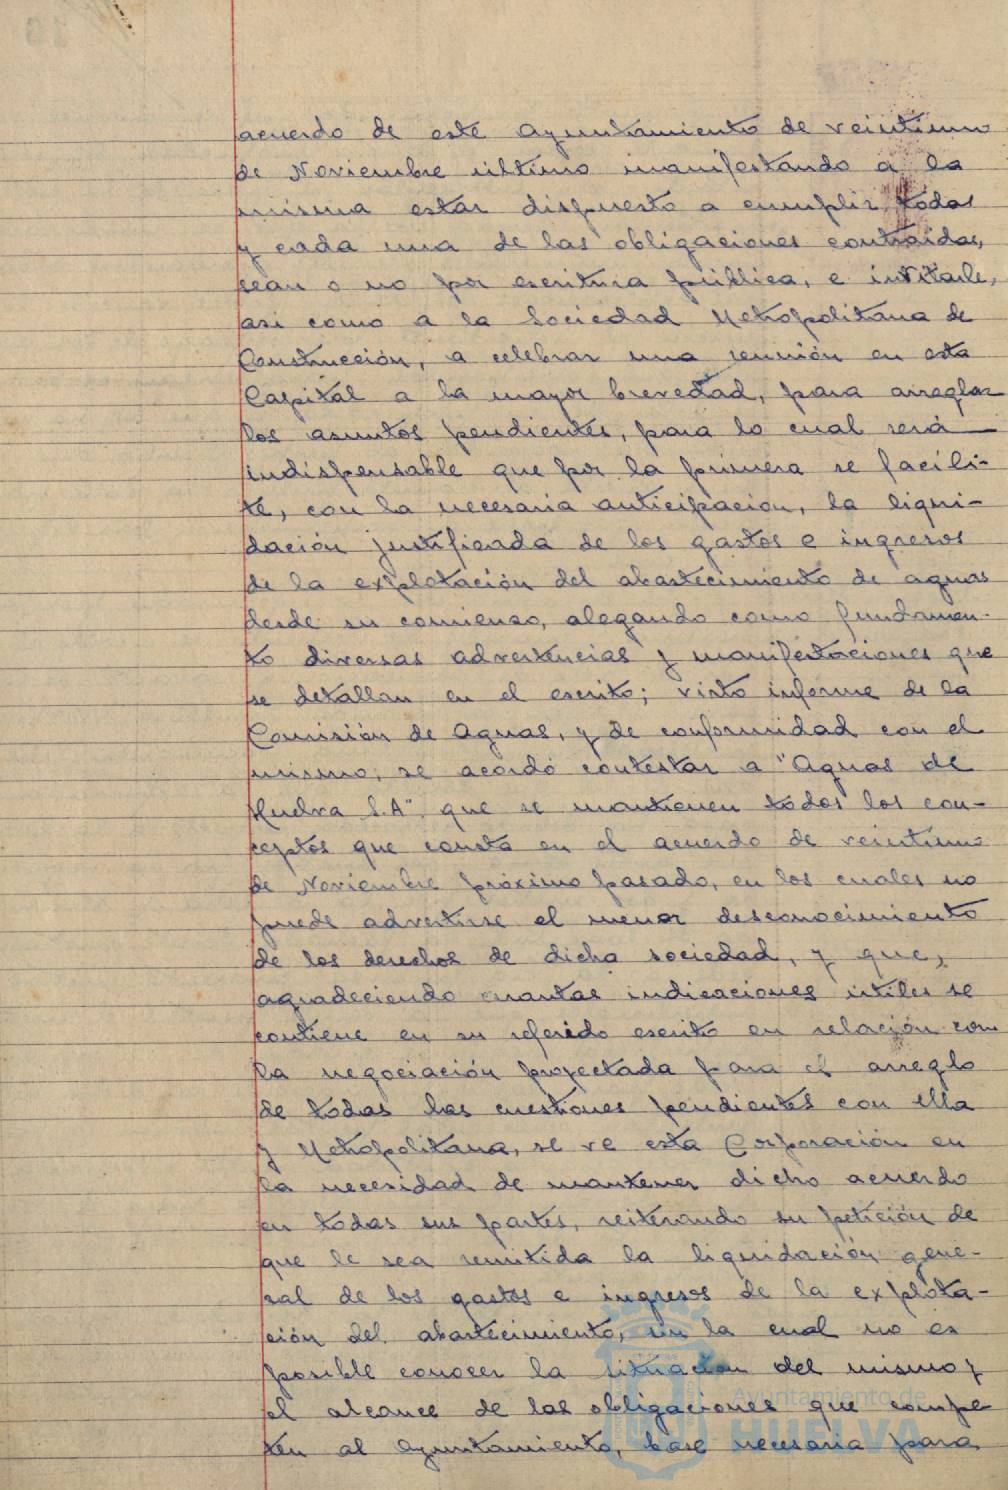 acuerdo de este Ayuntamiento de veintiuno
de Noviembre último manifestando a la
misma estar dispuesto a cumplir todas
y cada una de las obligaciones contraidas,
sean o no por escritura pública, e invitarle,
asi como a la Sociedad Metropolitana de
Construcción, a celebrar una reunión en esta
Capital a la mayor brevedad, para arreglar
los asuntos pendientes, para lo cual será
indispensable que por la primera se facili-
te, con la necesaria anticipacion, la liqui-
dación justificada de los gastos e ingresos
de la explotación del abastecimiento de aguas
desde su comienzo, alegando como fundamen-
to diversas advertencias y manifestaciones que
se detallan en el escrito; visto informe de la
Comisión de Aguas, y de conformidad con el
mismo, se acordó contestar a "Aguas de
Huelva S.A" que se mantienen todos los con-
ceptos que consta en el acuerdo de veintiuno
de Noviembre próximo pasado, en los cuales no
puede advertirse el menor desconocimiento
de los derechos de dicha sociedad, y que,
agradeciendo cuantas indicaciones útiles se
contiene en su referido escrito en relación con
la negociación proyectada para el arreglo
de todas las cuestiones pendientes con ella
y Metropolitana, se ve esta Corporación en
la necesidad de mantener dicho acuerdo
en todas sus partes, reiterando su petición de
que le sea remitida la liquidación gene-
ral de los gastos e ingresos de la explota-
ción del abastecimiento, sin la cual no es
posible conocer la situacion del mismo y
el alcance de las obligaciones que compe
ten al Ayuntamiento, base necesaria para
Ayuntamiento de
HUELVA